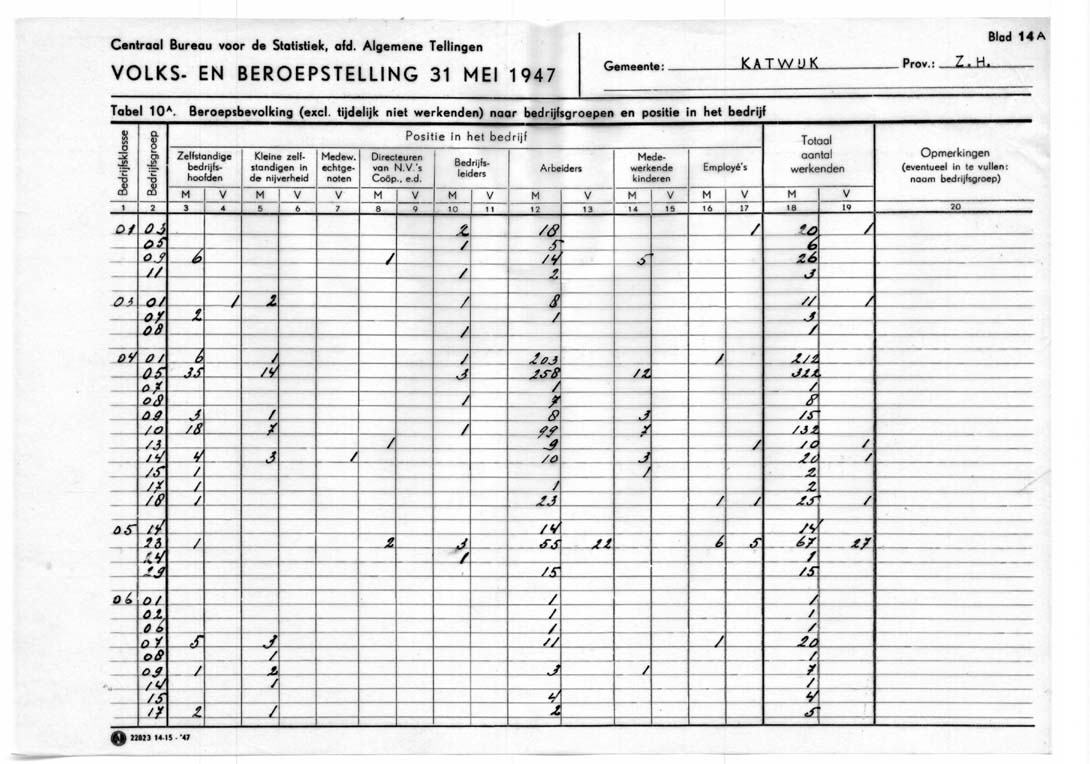 Centraal Bureau voor de Statistiek, afd. Algemene Tellingen
VOLKS- EN BEROEPSTELLING 31 MEI 1947
Gemeente: KATWIJK Prov.: Z.H.
Blad 14 A
Tabel 10A. Beroepsbevolking (excl. tijdelijk niet werkenden) naar bedrijfsgroepen en positie in het bedrijf
Bedrijfsklasse
Bedrijfsgroep
Positie in het bedrijf
Zelfstandige bedrijfs- hoofden
Kleine zelf- standigen in de nijverheid
Medew. echtge- noten
Directeuren van N.V.'s Coöp., e.d.
Bedrijfs- leiders
Arbeiders
Mede- werkende kinderen
Employé's
Totaal aantal werkenden
Opmerkingen (eventueel in te vullen: naam bedrijfsgroep)
M V M V V M V M V M V M V M V M V
1 2 3 4 5 6 7 8 9 10 11 12 13 14 15 16 17 18 19 20
01 03 2 18 1 20 1
05 1 5 6
09 6 1 14 5 26
11 1 2 3
03 01 1 2 1 8 11 1
07 2 1 3
08 1 1
04 01 6 1 1 203 1 212
05 35 14 3 258 12 322
07 1 1
08 1 7 8
09 3 1 8 3 15
10 18 7 1 99 7 132
13 1 9 1 10 1
14 4 3 1 10 3 20 1
15 1 1 2
17 1 1 2
18 1 23 1 1 25 1
05 14 14 14
23 1 2 3 55 22 6 5 67 27
24 1 1
29 15 15
06 01 1 1
02 1 1
06 1 1
07 5 3 11 1 20
08 1 1
09 1 2 3 1 7
14 1 1
15 4 4
17 2 1 2 5
22823 14-15 - '47